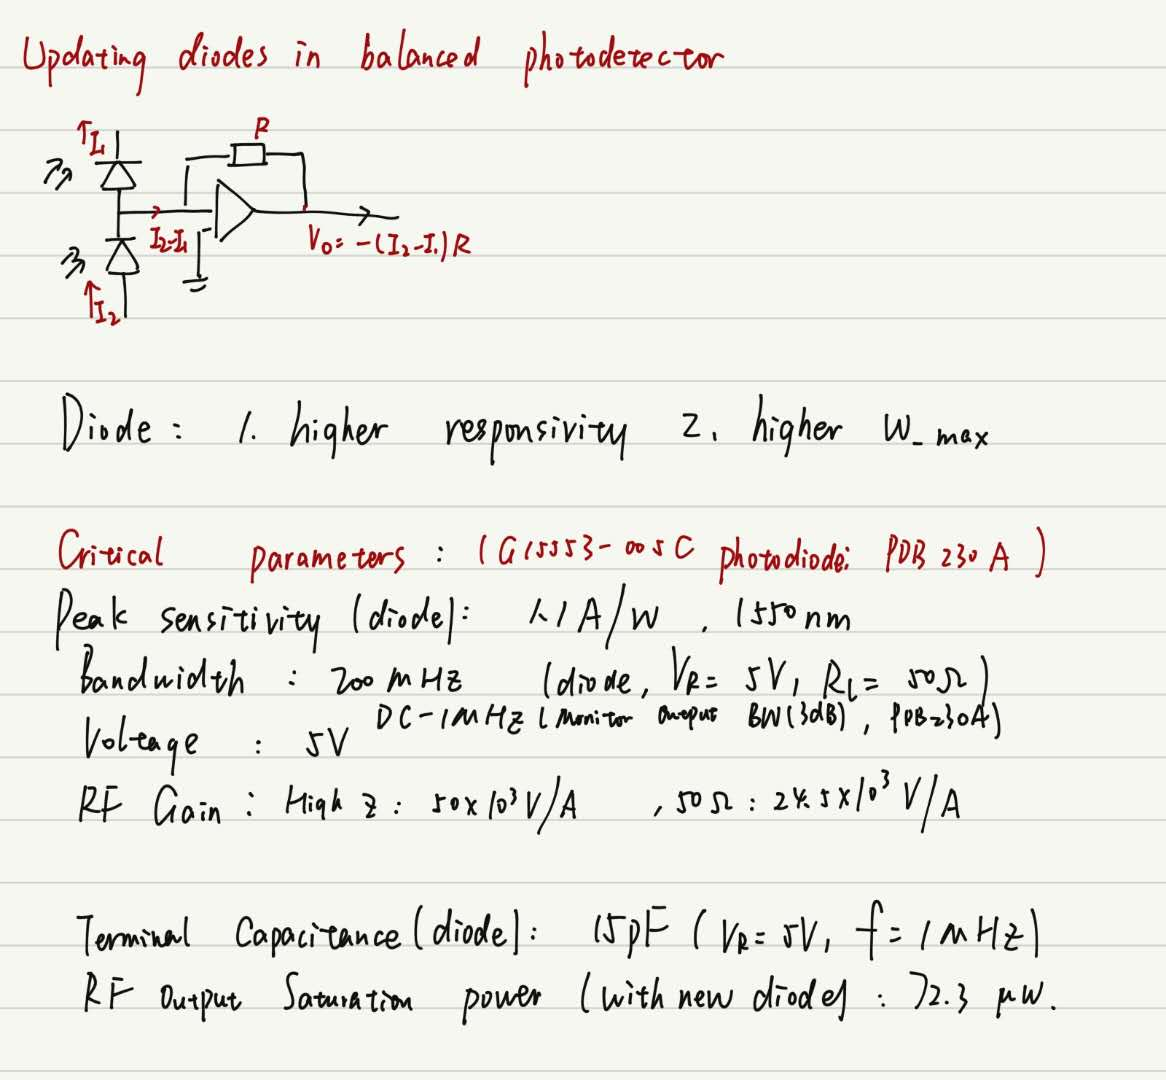 Updating diodes in balanced photodetector
↑I₁
R
I₂-I₁
V₀= -(I₂-I₁)R
↑I₂
Diode: 1. higher responsivity 2. higher W_max
Critical parameters: (G15553-005C photodiode; PDB230A)
Peak sensitivity (diode): 1.1A/W, 1550nm
Bandwidth : 200MHz (diode, V_R= 5V, R_L= 50Ω)
DC-1MHz (Monitor Output BW(3dB), PDB230A)
Voltage : 5V
RF Gain: High Z: 50×10³V/A , 50Ω: 24.5×10³ V/A
Terminal Capacitance(diode): 15pF (V_R= 5V, f=1MHz)
RF Output Saturation power (with new diode): 72.3 μW.